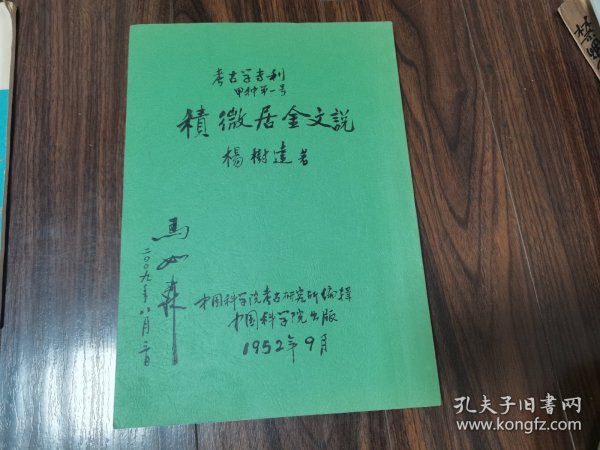 考古学专刊
甲种第一号
積微居金文説
楊樹達著
馬如森
二〇〇九年八月三日
中国科学院考古研究所编辑
中国科学院出版
1952年9月
孔夫子旧书网
www.kongfz.com